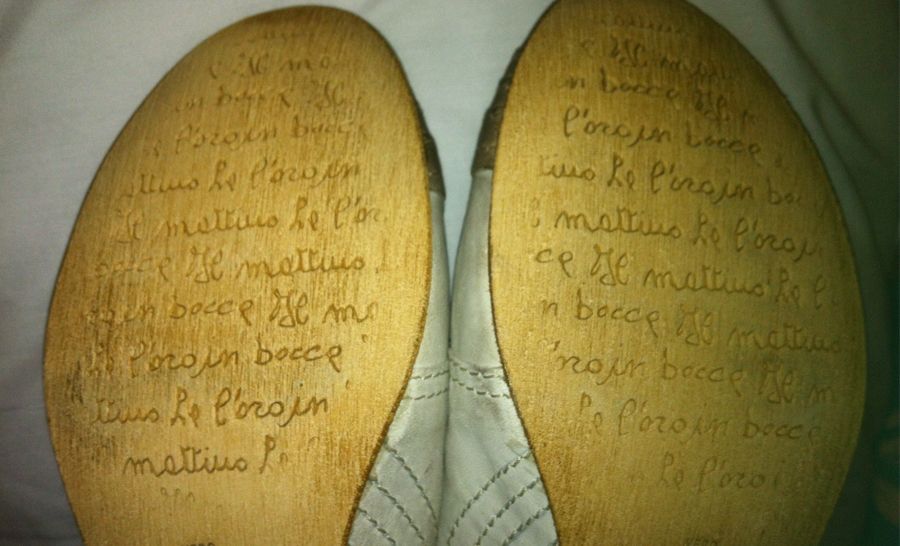 Il ma
in bocca Il
l'oro in bocca
attino ha l'oro in
Il mattino ha l'or
bocca Il mattino
in bocca Il ma
l'oro in bocca
ttino ha l'oro in
mattino ha
Il matt
in bocca Il
l'oro in bocca
tino ha l'oro in bo
mattino ha l'oro in
ca Il mattino ha l'
n bocca Il mattino
'oro in bocca Il m
l'oro in bocca
ha l'oro i